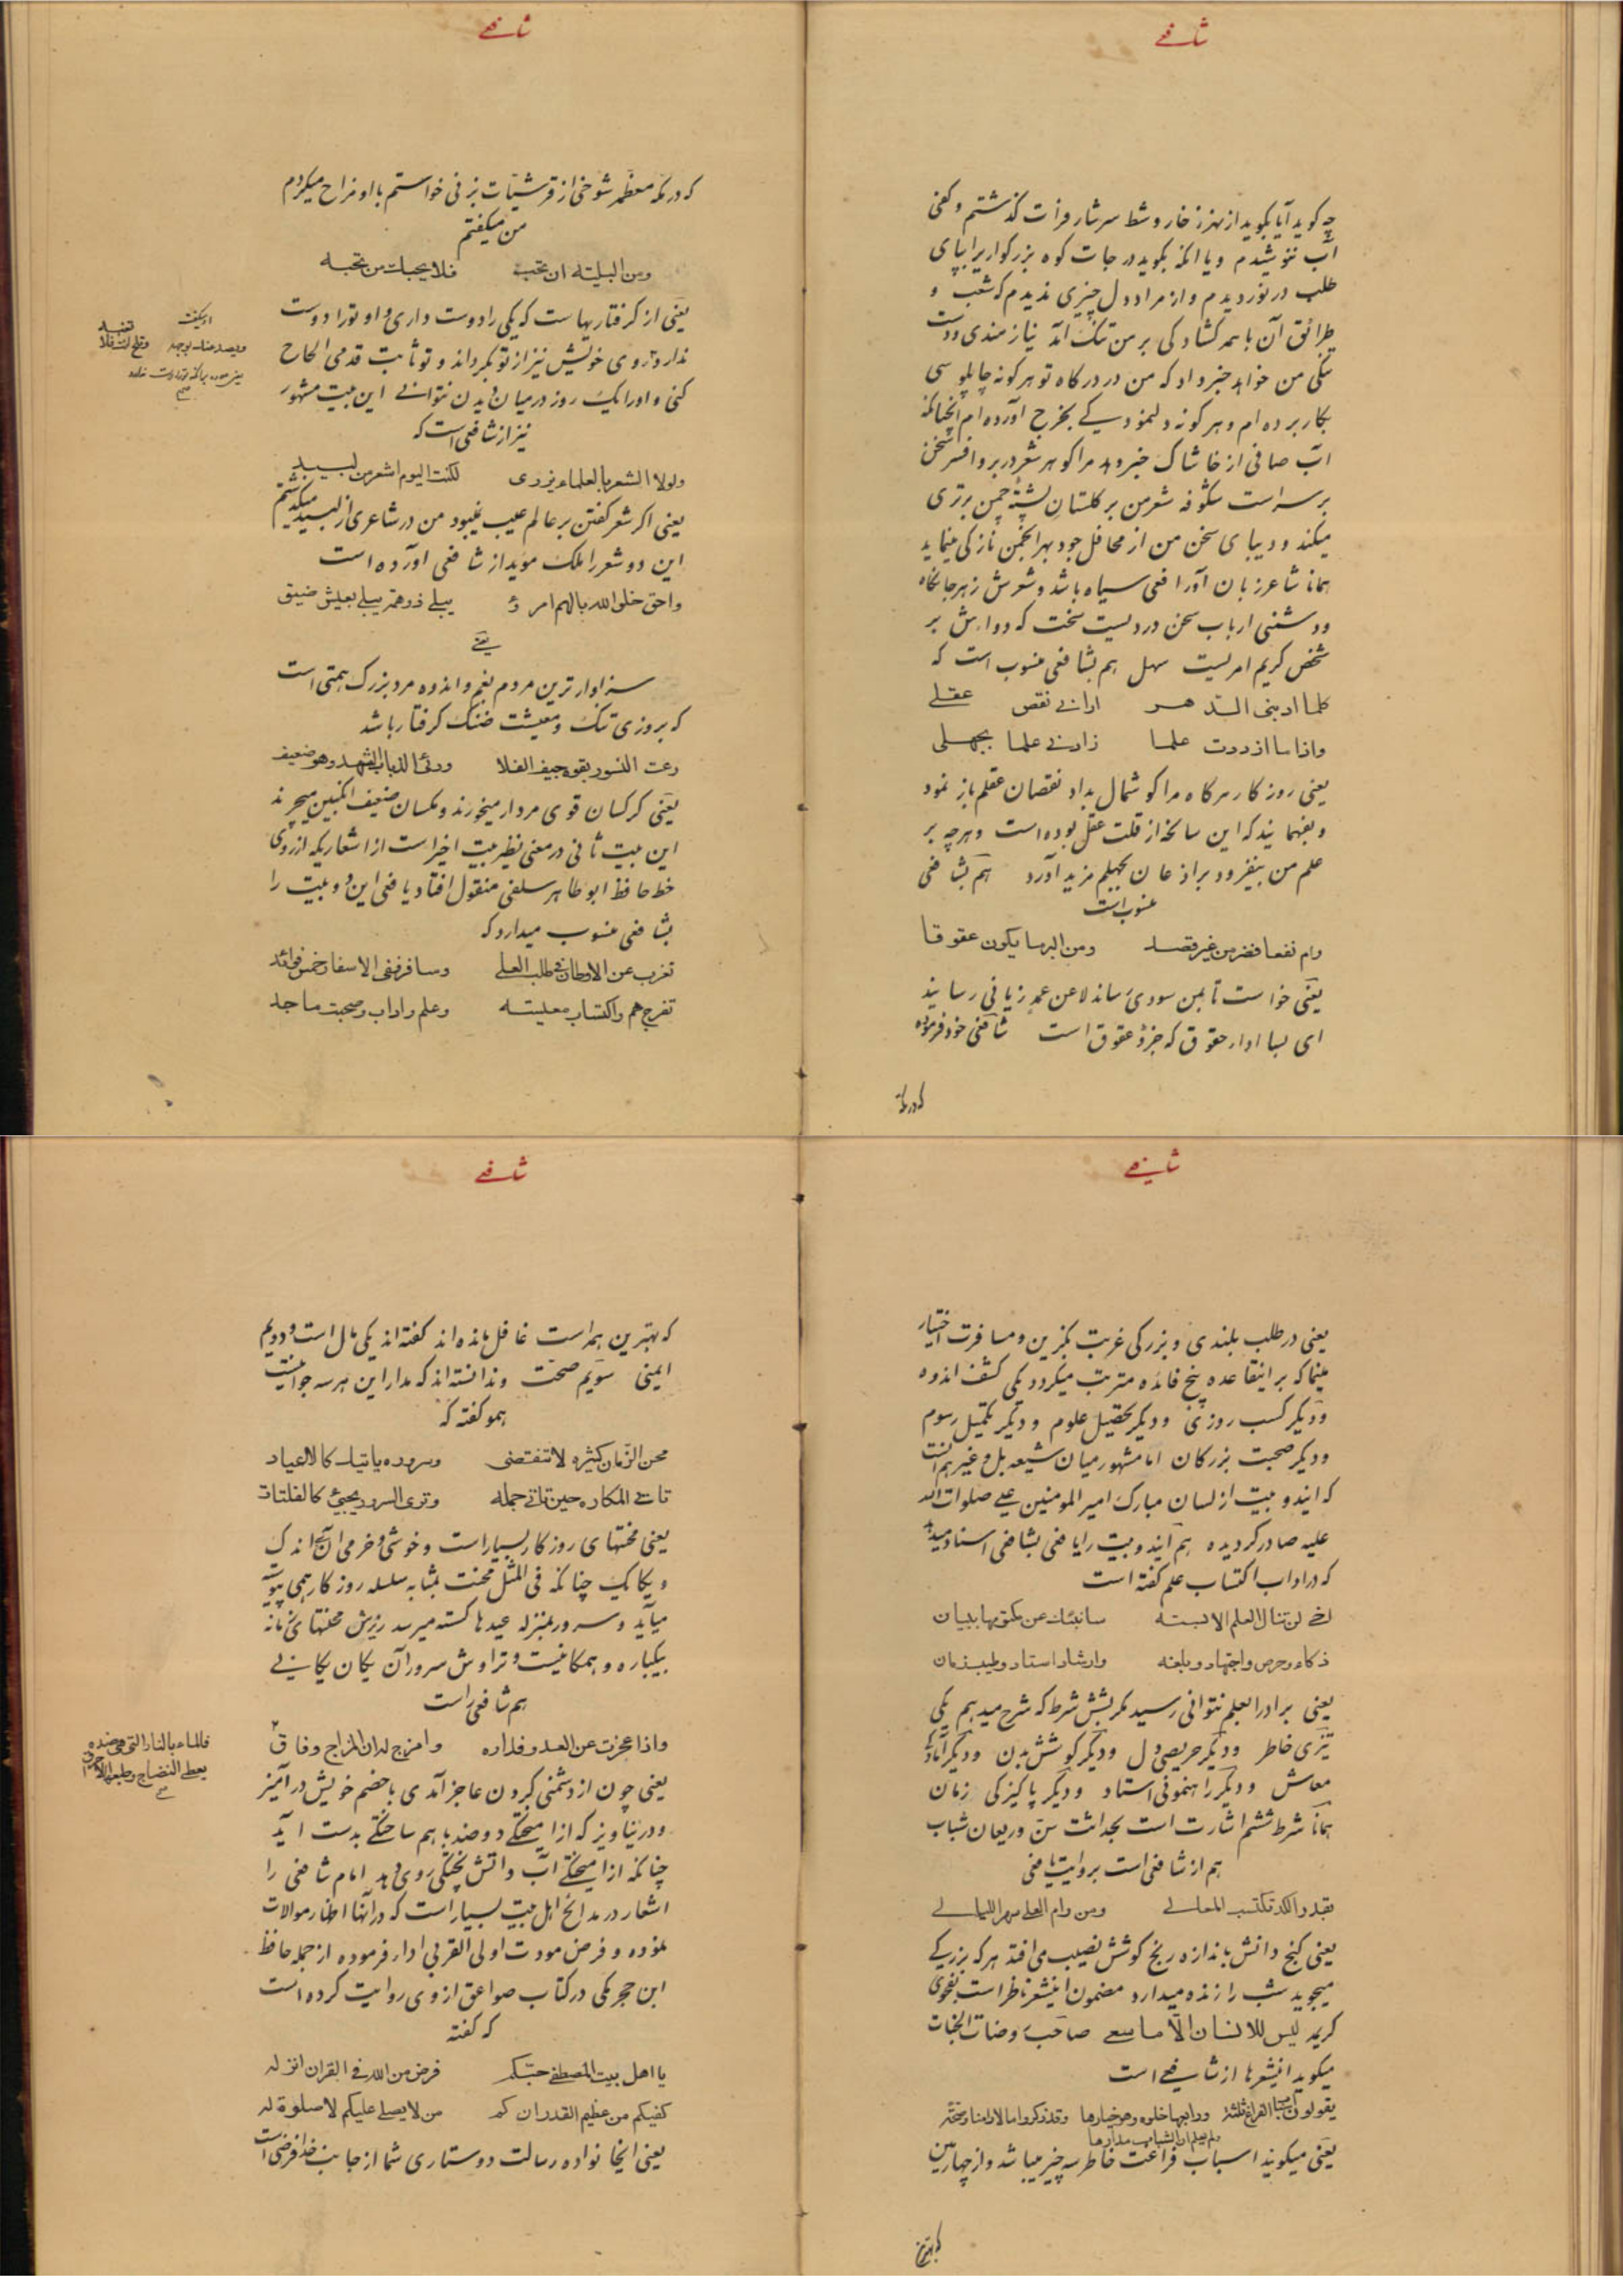 شافعے
چه کوید آیا بگوید از نهر زخار وشط سرشار فرات گذشتم وکفی
آب ننوشیدم ویا انکه بگوید درجات کوه بزرگواریرا بپای
طلب درنوردیدم واز مراد دل چیزی ندیدم که شعب و
طرائق آن با همه گشادگی بر من تنگ آمد نیازمندی ودست
تنگی من خواهد خبر داد که من در درگاه تو هر کونه چاپلوسی
بکار برده ام وهر کونه دلیمودیکے بخرج آورده ام انچنانکه
آب صافی از خاشاک خبر دهد مرا گوهر شعر در بر وافسر سخن
بر سر است شکوفه شعر من بر گلستان پشته چمن برتری
میکند ودیبای سخن من از محافل جود بهر انجمن نازکی مینماید
همانا شاعر زبان آور افعی سیاه باشد وشعرش زهر جانکاه
ودشمنی ارباب سخن دردیست سخت که دوایش بر
شخص کریم امریست سهل هم بشافعی منسوب است که
کلما ادبنی الدهر ارانے نقص عقلے
واذا ما ازددت علما زادنے علما بجهلی
یعنی روزگار هرگاه مرا گوشمال بداد نقصان عقلم باز نمود
وبفهمانید که این سانحه از قلت عقل بوده است وهرچه بر
علم من بیفزود بر اذعان بجهلم مزید آورد هم بشافعی
منسوب است
رام نفعا فضر من غیر قصد ومن البر ما یکون عقوقا
یعنی خواست تا بمن سودی رساند لا عن عمد زیانی رسانید
ای بسا ادار حقوق که جزؤ عقوق است شافعی خود فرموده
که در مکه
شافعے
که در مکه معظمه شوخی از قرشیّات بزنی خواستم با او مزاح میکردم
من میکفتم
ومن البلیته ان تحب فلا یحبك من تحبه
یعنی از گرفتاریهاست که یکی را دوست داری و او تو را دوست
ندارد وروی خویش نیز از تو بگرداند وتو ثابت قدمی الحاح
کنی و او را یک روز در میان دیدن نتوانے این بیت مشهور
نیز از شافعی است که
ولولا الشعر بالعلماء یزری لکنت الیوم اشعر من لبید
یعنی اگر شعر کفتن بر عالم عیب نمیبود من در شاعری از لبید میگذشتم
این دو شعر را ملک مؤید از شافعی آورده است
واحق خلق الله بالهم امرؤ یبلے ذو همة یبلے بعیش ضیق
یعنے
سزاوارترین مردم بغم واندوه مرد بزرگ همتی است
که بروزی تنگ ومعیشت ضنک گرفتار باشد
رعت النسور بقوه جیف الفلا ورعی الذباب الشهد وهو ضعیف
یعنی کرکسان قوی مردار میخورند ومگسان ضعیف انگبین میچرند
این بیت ثانی در معنی نظیر بیت اخیر است از اشعاریکه از روی
خط حافظ ابو طاهر سلفی منقول افتاد یافعی این دو بیت را
بشافعی منسوب میدارد که
تغرب عن الاوطان فے طلب العلی وسافر ففی الاسفار خمس فوائد
تفرج هم واکتساب معیشته وعلم واداب وصحبت ماجد
او میکفت
ویصد عنك بوجهه وتلح انت فلا تغبه
شافعے
یعنی در طلب بلندی وبزرگی غربت بگزین ومسافرت اختیار
مینما که بر اینقاعده پنج فائده مترتب میگردد یکی کشف اندوه
ودیگر کسب روزی ودیگر تحصیل علوم ودیگر تکمیل رسوم
ودیگر صحبت بزرگان اما مشهور میان شیعه بل وغیرهم آنست
که ایندو بیت از لسان مبارک امیر المومنین علے صلوات الله
علیه صادر گردیده هم ایندو بیت را یافعی بشافعی اسناد میدهد
که در اداب اکتساب علم گفته است
اخے لن تنال العلم الا بسته سانبئك عن مکنونها ببیان
ذکاء وحرص واجتهاد وبلغه وارشاد استاد وطیب زمان
یعنی برادرا بعلم نتوانی رسید مگر بشش شرط که شرح میدهم یکی
تیزی خاطر ودیگر حریصی دل ودیگر کوشش بدن ودیگر آمادگی
معاش ودیگر راهنمونی استاد ودیگر پاکیزگی زمان
همانا شرط ششم اشارت است بحداثت سن وریعان شباب
هم از شافعی است بروایت یافعی
بقدر الکد تکتسب المعالے ومن رام العلی سهر اللیالے
یعنی گنج دانش باندازه رنج کوشش نصیب می افتد هر که بزرگے
میجوید شب را زنده میدارد مضمون اینشعر ناظر است بفحوی
کریمه لیس للانسان الا ما سعے صاحب روضات الجنات
میکوید اینشعرها از شافعے است
یقولون اسباب الفراغ ثلثة ورابعها خلوه وهو خیارها وقد ذکروا مالا وامنا وصحّة
ولم یعلموا ان الشباب مدارها
یعنی میکویند اسباب فراغت خاطر سه چیز میباشد واز چهارمین
که بهترین
شافعے
که بهترین همه است غافل مانده اند کفته اند یکی مال است ودویم
ایمنی سویم صحّت وندانسته اند که مدار این هرسه جوانیست
همو کفته که
محن الزّمان کثیره لا تنقضی وسروره یاتیك کالاعیاد
تاتے المکاره حین تاتی جمله وتری السرور یجیئ کالفلتات
یعنی محنتهای روزگار بسیار است وخوشی وخرمی آن اندک
ویکایک چنانکه فی المثل محنت بمثابه سلسله روزگار همی پیوسته
میآید وسرور بمنزله عیدها گسته میرسد ریزش محنتهای زمانه
بیکباره وهمگانیست وتراوش سرور آن یکان یکانے
هم شافعی راست
واذا عجزت عن العدو فداره وامزج له ان المزاج وفاق
یعنی چون از دشمنی کردن عاجز آمدی با خصم خویش در آمیز
ودر نیاویز که از آمیختگے دو ضد باهم ساختگے بدست آید
چنانکه از آمیختگے آب واتش پختگی روی دهد امام شافعی را
اشعار در مدائح اهل بیت بسیار است که در آنها اظهار موالات
نموده وفرض مودت اولی القربی ادا فرموده از جمله حافظ
ابن حجر مکی در کتاب صواعق از وی روایت کرده است
که کفته
یا اهل بیت المصطفے حبّکم فرض من الله فے القران انزله
کفیکم من عظیم القدر ان کم من لا یصلے علیکم لا صلوة له
یعنی ایخانواده رسالت دوستاری شما از جانب خدا فرضی است
فالماء بالنار التی هی ضده
یعطی النضاج وطبعها الاحراق